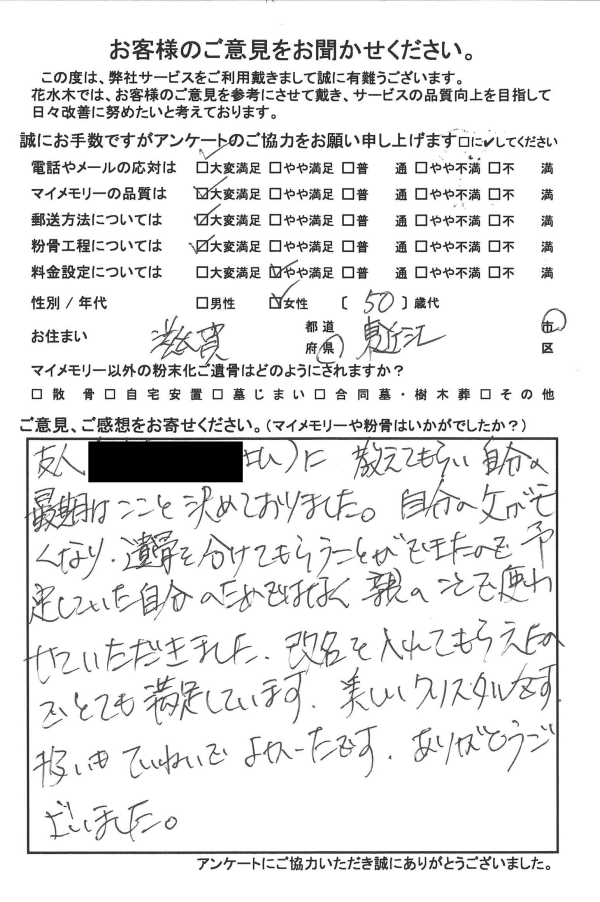 お客様のご意見をお聞かせください。
この度は、弊社サービスをご利用戴きまして誠に有難うございます。
花水木では、お客様のご意見を参考にさせて戴き、サービスの品質向上を目指して
日々改善に努めたいと考えております。
誠にお手数ですがアンケートのご協力をお願い申し上げます□に✔してください
電話やメールの応対は ☑大変満足 □やや満足 □普 通 □やや不満 □不 満
マイメモリーの品質は ☑大変満足 □やや満足 □普 通 □やや不満 □不 満
郵送方法については ☑大変満足 □やや満足 □普 通 □やや不満 □不 満
粉骨工程については ☑大変満足 □やや満足 □普 通 □やや不満 □不 満
料金設定については □大変満足 ☑やや満足 □普 通 □やや不満 □不 満
性別 / 年代 □男性 ☑女性 〔 50 〕歳代
お住まい 滋賀 都道府県 東近江 市区
マイメモリー以外の粉末化ご遺骨はどのようにされますか？
□ 散 骨 □ 自 宅 安 置 □ 墓 じ ま い □ 合 同 墓・樹 木 葬 □ そ の 他
ご意見、ご感想をお寄せください。(マイメモリーや粉骨はいかがでしたか？)
友人( さん)に 教えてもらい 自分の
最期はここと決めておりました。自分の父が亡
くなり、遺骨を分けてもらうことができたので 予
定していた自分のためではなく 親のことで使わ
せていただきました。 名を入れてもらえたの
でとても満足しています。美しいクリスタルです。
扱いもていねいで よかったです。ありがとうご
ざいました。
アンケートにご協力いただき誠にありがとうございました。